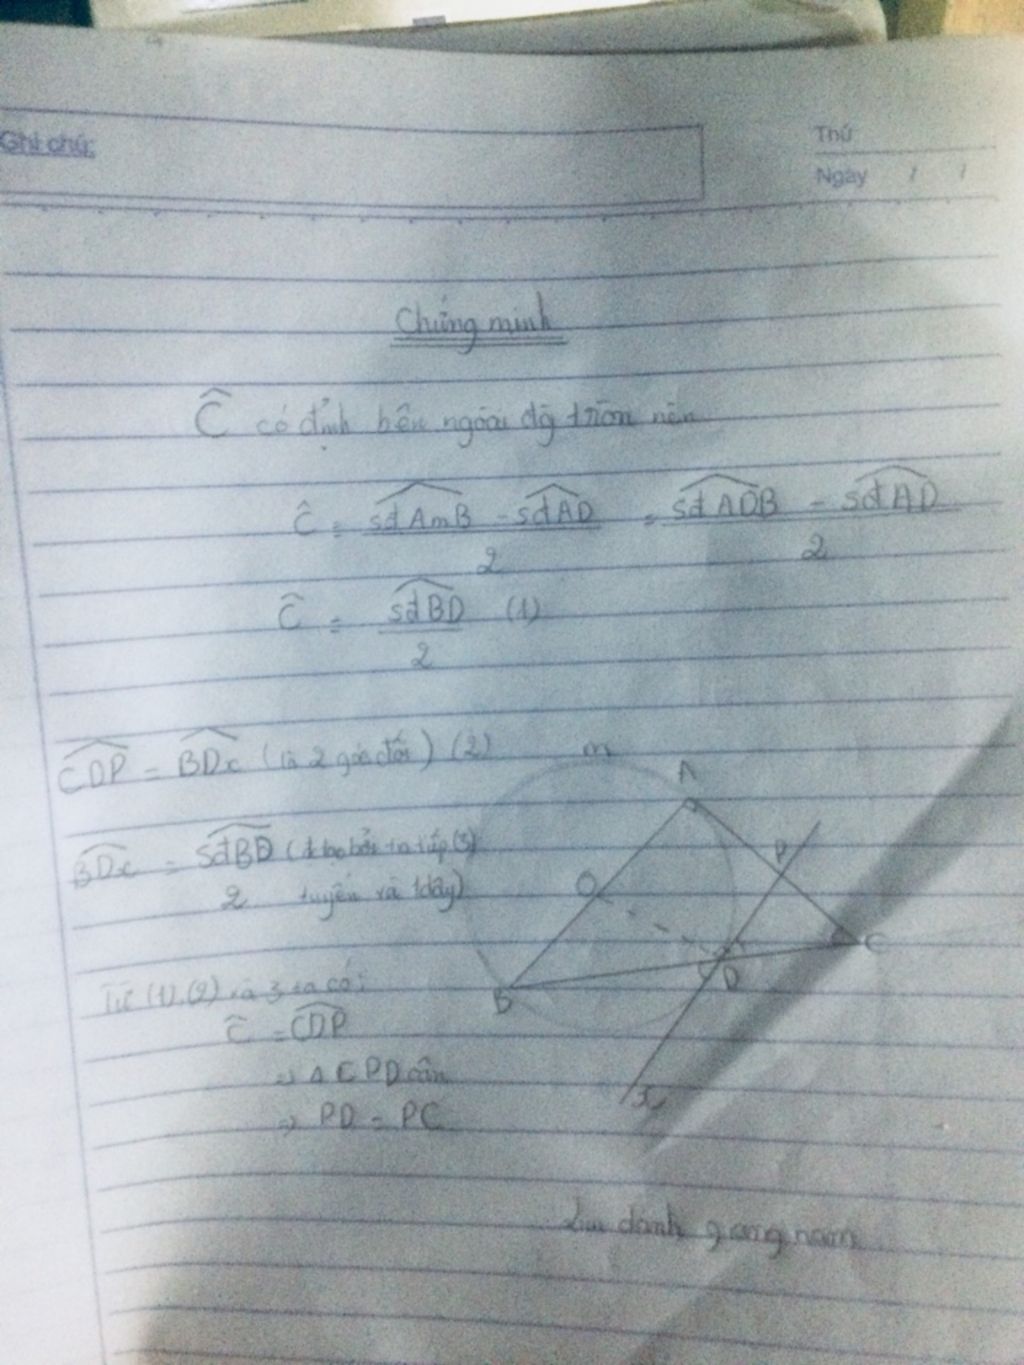 Ghi chú:
Thứ
Ngày / /
Chứng minh
Ĉ có đỉnh bên ngoài đg tròn nên
Ĉ = sđAmB - sđAD / 2 = sđADB - sđAD / 2
Ĉ = sđBD / 2 (1)
CDP = BDx (là 2 góc đối) (2)
BDx = sđBD / 2 (tạo bởi ta tiếp (3)
tuyến và 1 dây)
Từ (1), (2) và 3 ta có:
Ĉ = CDP
=> Δ CPD cân
=> PD = PC
m
A
P
O
C
D
B
x
danh giang nam